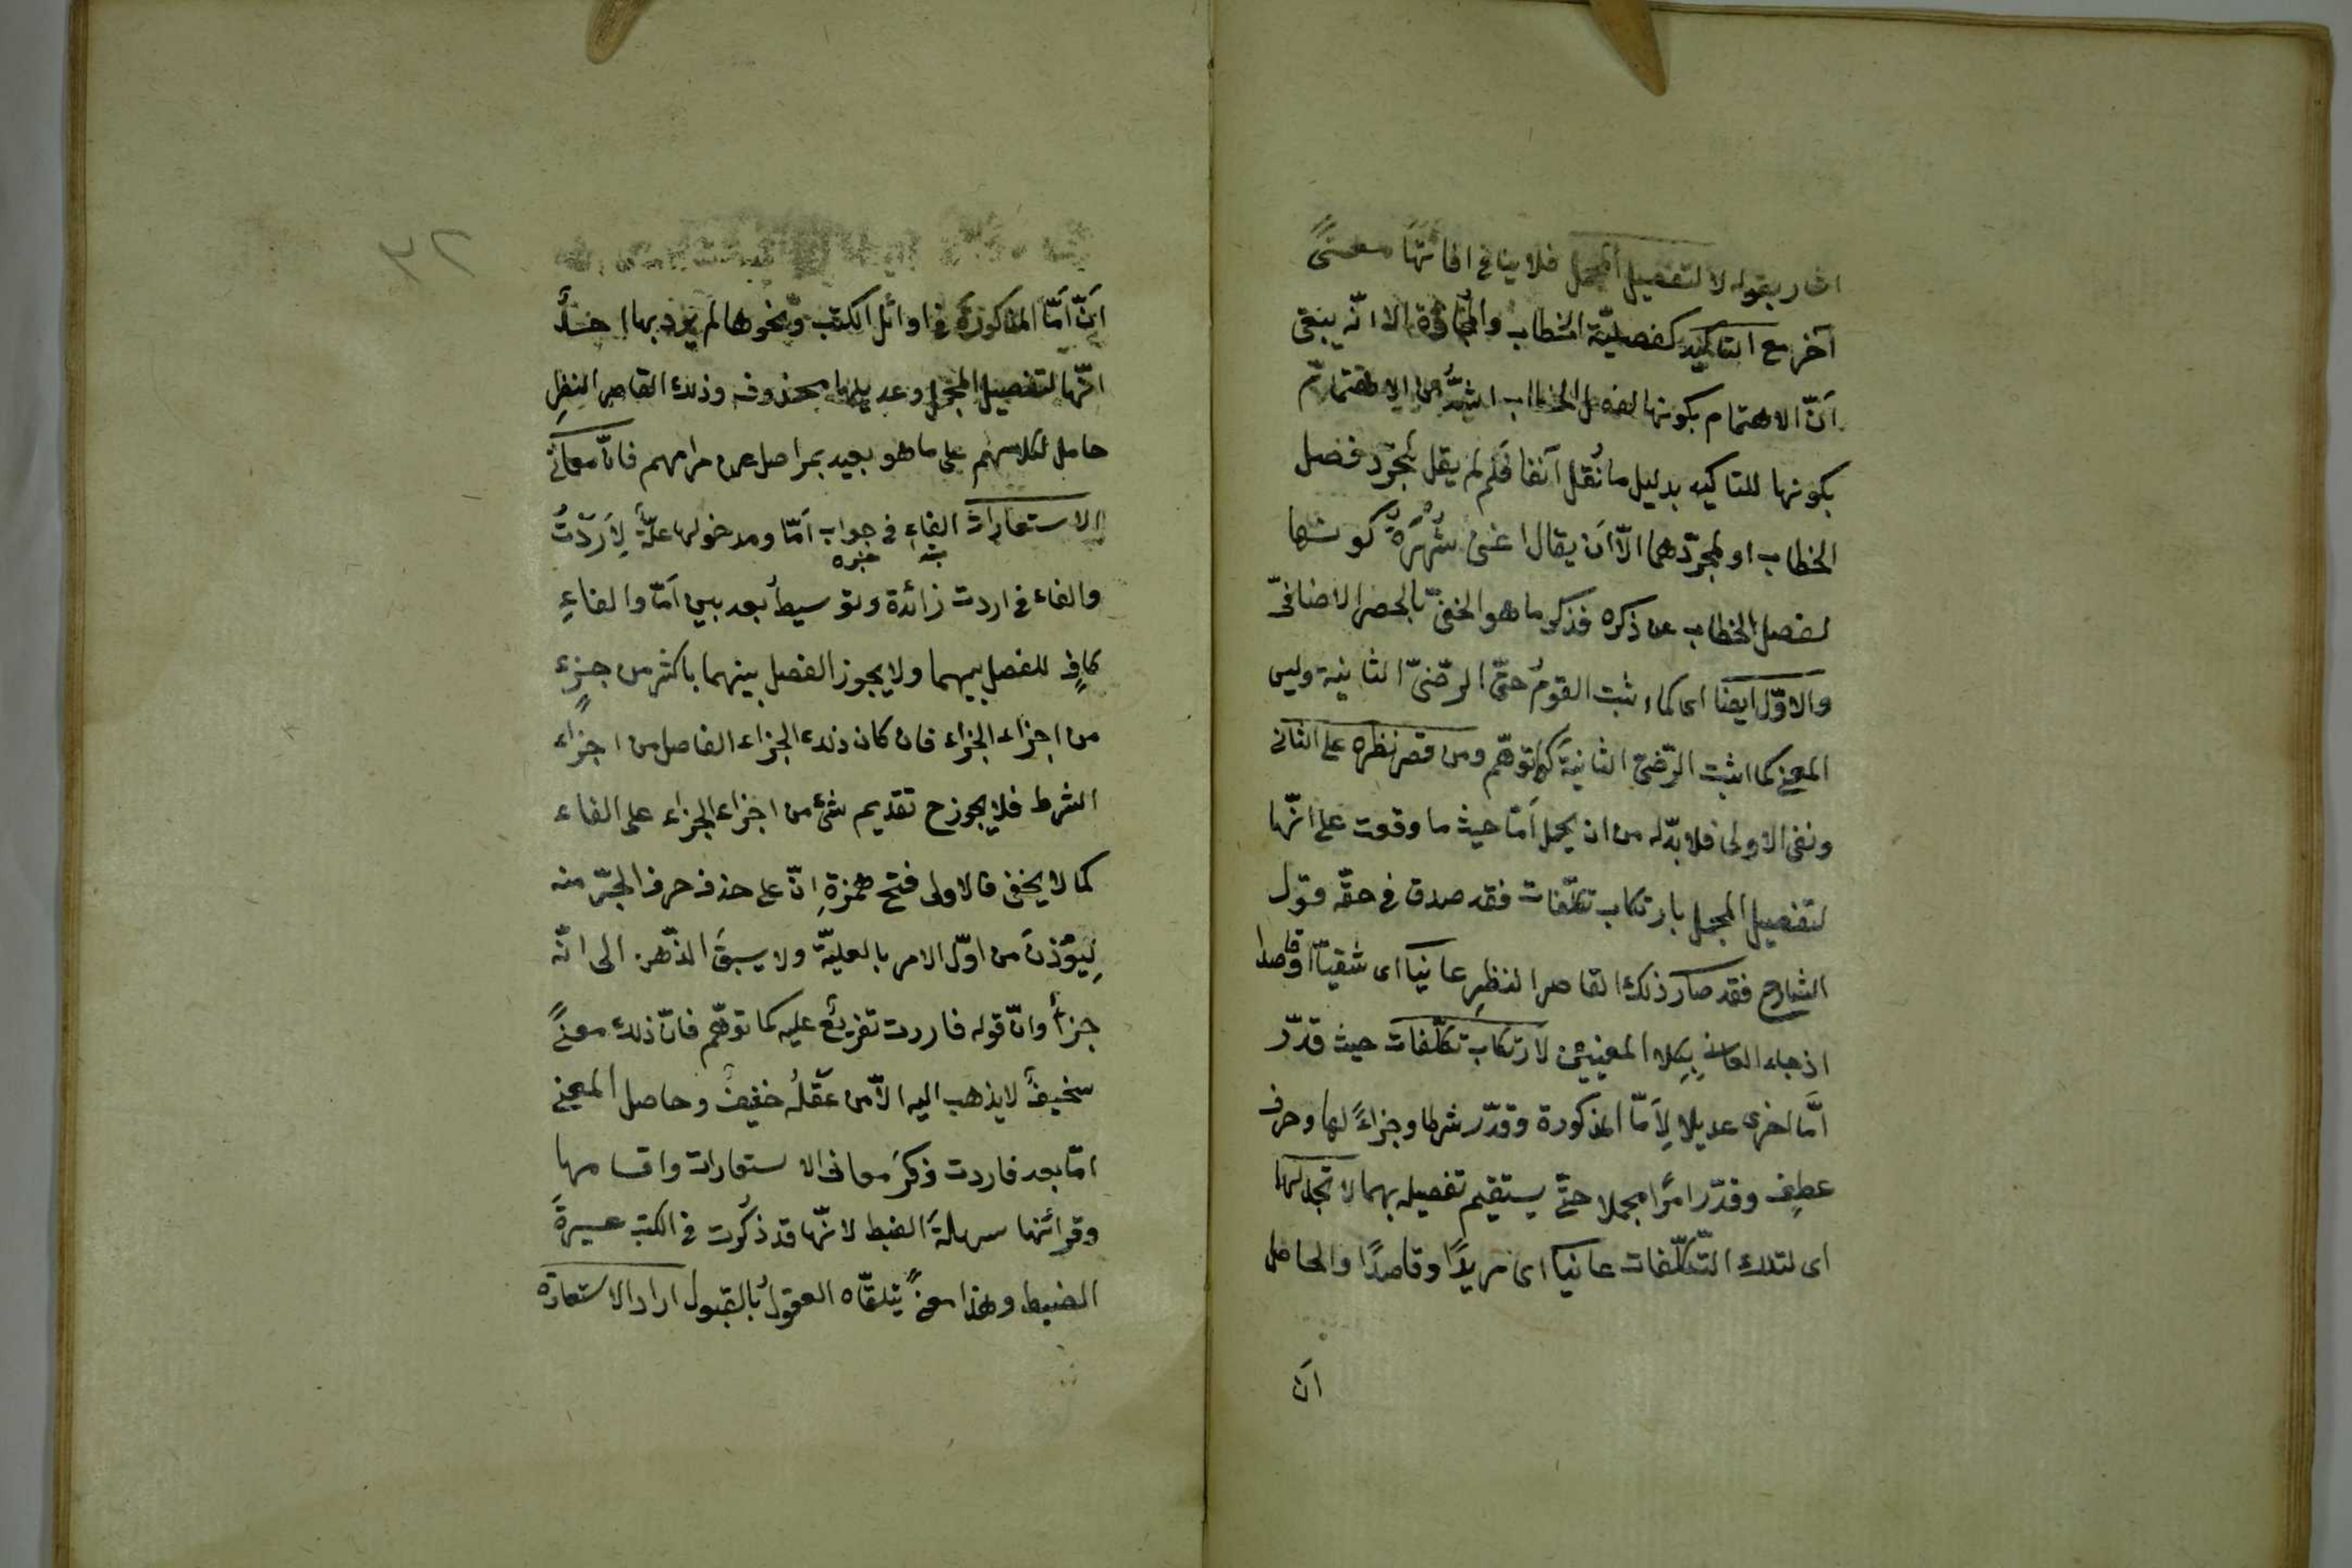 اشار بقوله لا لتفصيل المجمل فلا ينافي افادتها معنىً
آخر مع التاكيد كفصليّة الخطاب والمجازة الا انّه يبقى
اَنّ الاهتمام بكونها لفصل الخطاب اشدُّ من الاهتمام
بكونها للتاكيد بدليل ما نُقل آنفا فلم لم يقل لمجرّد فصل
الخطاب او لمجرّدهما الّا اَن يقال اغنى شُهْرَةُ كونها
لفصل الخطاب عن ذكره فذكر ما هو الخفيّ بالحصر الاضافيّ
والاوّل ايضا اى كما اثبت القومُ حتّى الرضىّ الثانية وليس
المعنى كما اثبت الرّضىّ الثانيةَ كما توهّم ومن قصر نظره على الثاني
ونفى الاولى فلا بدّ له من ان يحمل اَمّا حيث ما وقعت على انّها
لتفصيل المجمل بارتكاب تكلّفات فقد صدق في حقّه قول
الشارح فقد صار ذلك القاصر النظرِ عانيا اى شقيّا او قاصدا
اذ جاء العانى بكلا المعنيين لارتكاب تكلّفات حيث قدّر
اَمّا اخرى عديلا لِاَمّا المذكورة وقدّر شرطا وجزاءً لها وحرف
عطفٍ وقدّر امرًا مجملا حتّى يستقيم تفصيله بهما لاجلها
اى لتلك التّكلّفات عانيا اى مريدًا وقاصدًا والحاصل
ان
اَنّ اَمّا المذكورةَ في اوائل الكتب ونحوها لم يُرِد بها احدٌ
انّها لتفصيل المجمل وعديلها محذوفه وذلك القاصر النظرِ
حامل لكلامهم على ما هو بعيد بمراحل عن مرامهم فانّ معانى
الاستعارات الفاء في جواب اَمّا ومدخولها علّةٌ لِاَرَدْتُ
خبره
والفاء في اردت زائدة وتوسيطُ بعد بين اَمّا والفاءِ
كافٍ للفصل بينهما ولا يجوز الفصل بينهما باكثر من جزءٍ
من اجزاء الجزاء فان كان ذلك الجزء الفاصل من اجزاء
الشرط فلا يجوز ح تقديم شىء من اجزاء الجزاء على الفاء
كما لا يخفى فالاولى فتح همزةِ انّ على حذف حرف الجرّ منه
لِيُؤذنَ من اوّل الامر بالعليّة ولا يسبقَ الذّهن الى انّه
جزأ وانّ قوله فاردت تفريعٌ عليه كما توهّم فانّ ذلك معنىً
سخيفٌ لا يذهب اليه الّا من عقلُه خفيفٌ وحاصل المعنى
امّا بعد فاردت ذكرَ معانى الاستعارات واقسامها
وقرائنها سهلةَ الضبط لانّها قد ذُكرت في الكتب عسيرةَ
الضبط وهذا معنىً يتلقّاه العقولُ بالقبول اراد الاستعارة